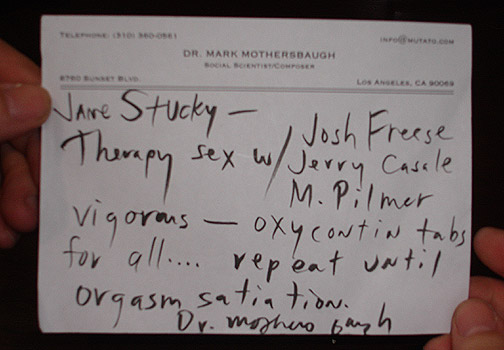 TELEPHONE: (310) 360-0561
INFO@MUTATO.COM
DR. MARK MOTHERSBAUGH
SOCIAL SCIENTIST/COMPOSER
8760 SUNSET BLVD.
LOS ANGELES, CA 90069
JANE STUCKY —
Therapy sex w/ Josh Freese
Jerry Casale
M. Pilmer
vigorous — oxycontin tabs
for all.... repeat until
orgasm satiation.
Dr. Mothersbaugh